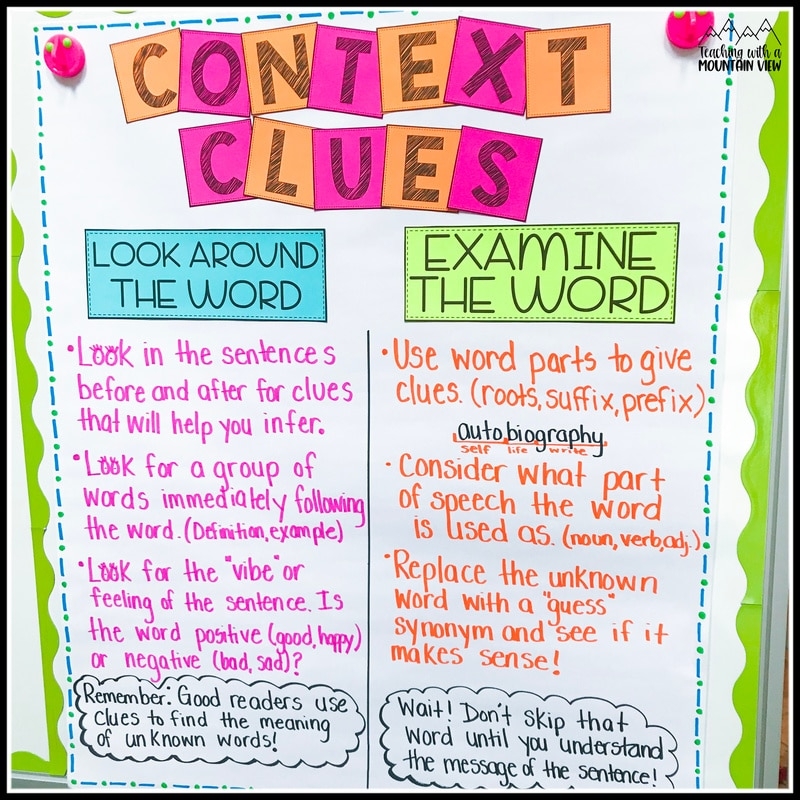 Teaching with a
MOUNTAIN VIEW
CONTEXT
CLUES
LOOK AROUND
THE WORD
• Look in the sentences
before and after for clues
that will help you infer.
• Look for a group of
words immediately following
the word. (Definition, example)
• Look for the "vibe" or
feeling of the sentence. Is
the word positive (good, happy)
or negative (bad, sad)?
Remember: Good readers use
clues to find the meaning
of unknown words!
EXAMINE
THE WORD
• Use word parts to give
clues. (roots, suffix, prefix)
autobiography
self life write
• Consider what part
of speech the word
is used as. (noun, verb, adj.)
• Replace the unknown
word with a "guess"
synonym and see if it
makes sense!
Wait! Don't skip that
word until you understand
the message of the sentence!